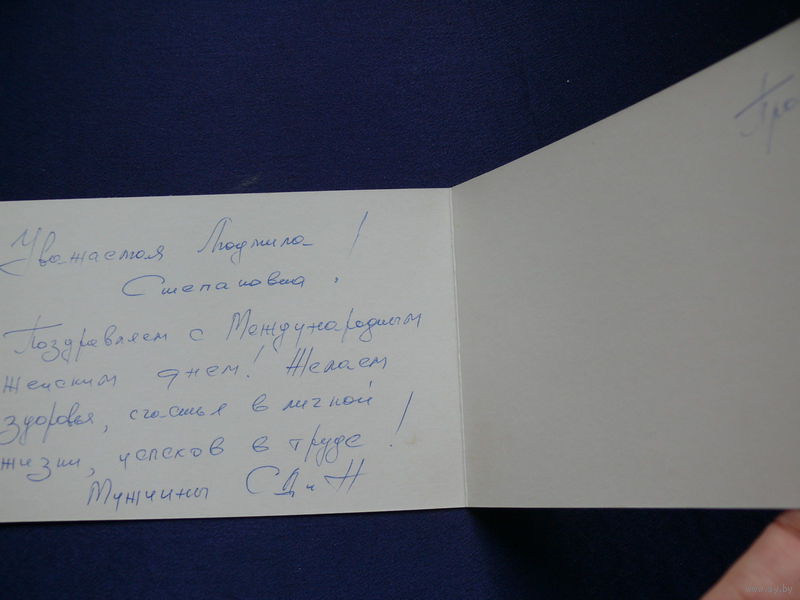 Уважаемая Людмила
Степановна!
Поздравляем с Международным
женским днем! Желаем
здоровья, счастья в личной
жизни, успехов в труде!
Мужчины СД и Н
www.ay.by